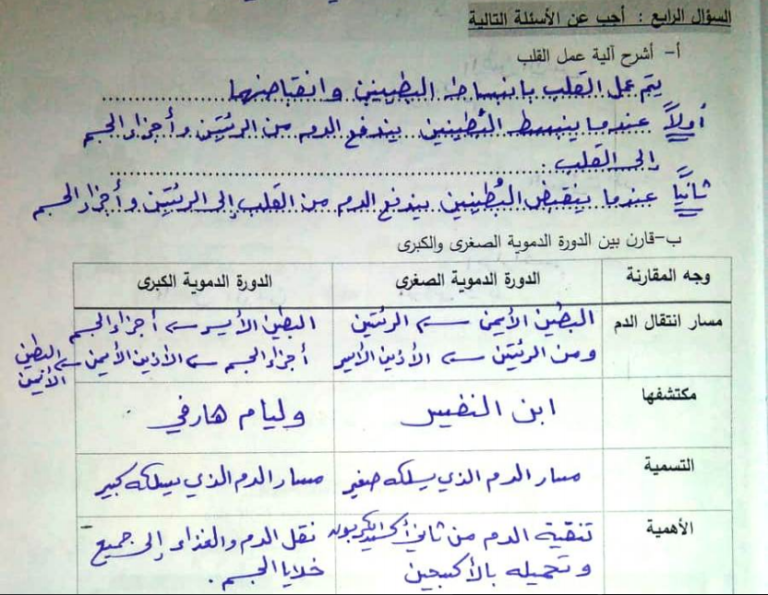 السؤال الرابع : أجب عن الأسئلة التالية
أ- أشرح آلية عمل القلب
يتم عمل القلب بانبساط البطينين وانقباضهما
أولاً عندما ينبسط البُطينين يندفع الدم من الرئتين وأجزاء الجسم
إلى القلب .
ثانياً عندما ينقبض البُطينين يندفع الدم من القلب إلى الرئتين وأجزاء الجسم
ب-قارن بين الدورة الدموية الصغرى والكبرى
وجه المقارنة الدورة الدموية الصغرى الدورة الدموية الكبرى
مسار انتقال الدم البطين الأيمن ← الرئتين البطين الأيسر ← أجزاء الجسم
ومن الرئتين ← الأذين الأيسر أجزاء الجسم ← الأذين الأيمن ← البطين الأيمن
مكتشفها ابن النفيس وليام هارفي
التسمية مسار الدم الذي يسلكه صغير مسار الدم الذي يسلكه كبير
الأهمية تنقية الدم من ثاني أكسيد الكربون نقل الدم والغذاء إلى جميع
وتحميله بالأكسجين خلايا الجسم .